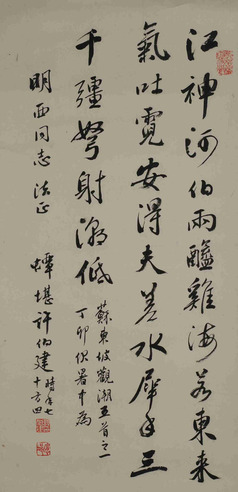 江神河伯兩醯雞海若東来
氣吐霓安得夫差水犀手三
千彊弩射潮低
蘇東坡觀潮五首之一
丁卯伏暑中為
明西同志 法正
蟫堪許伯建
時年七
十有四